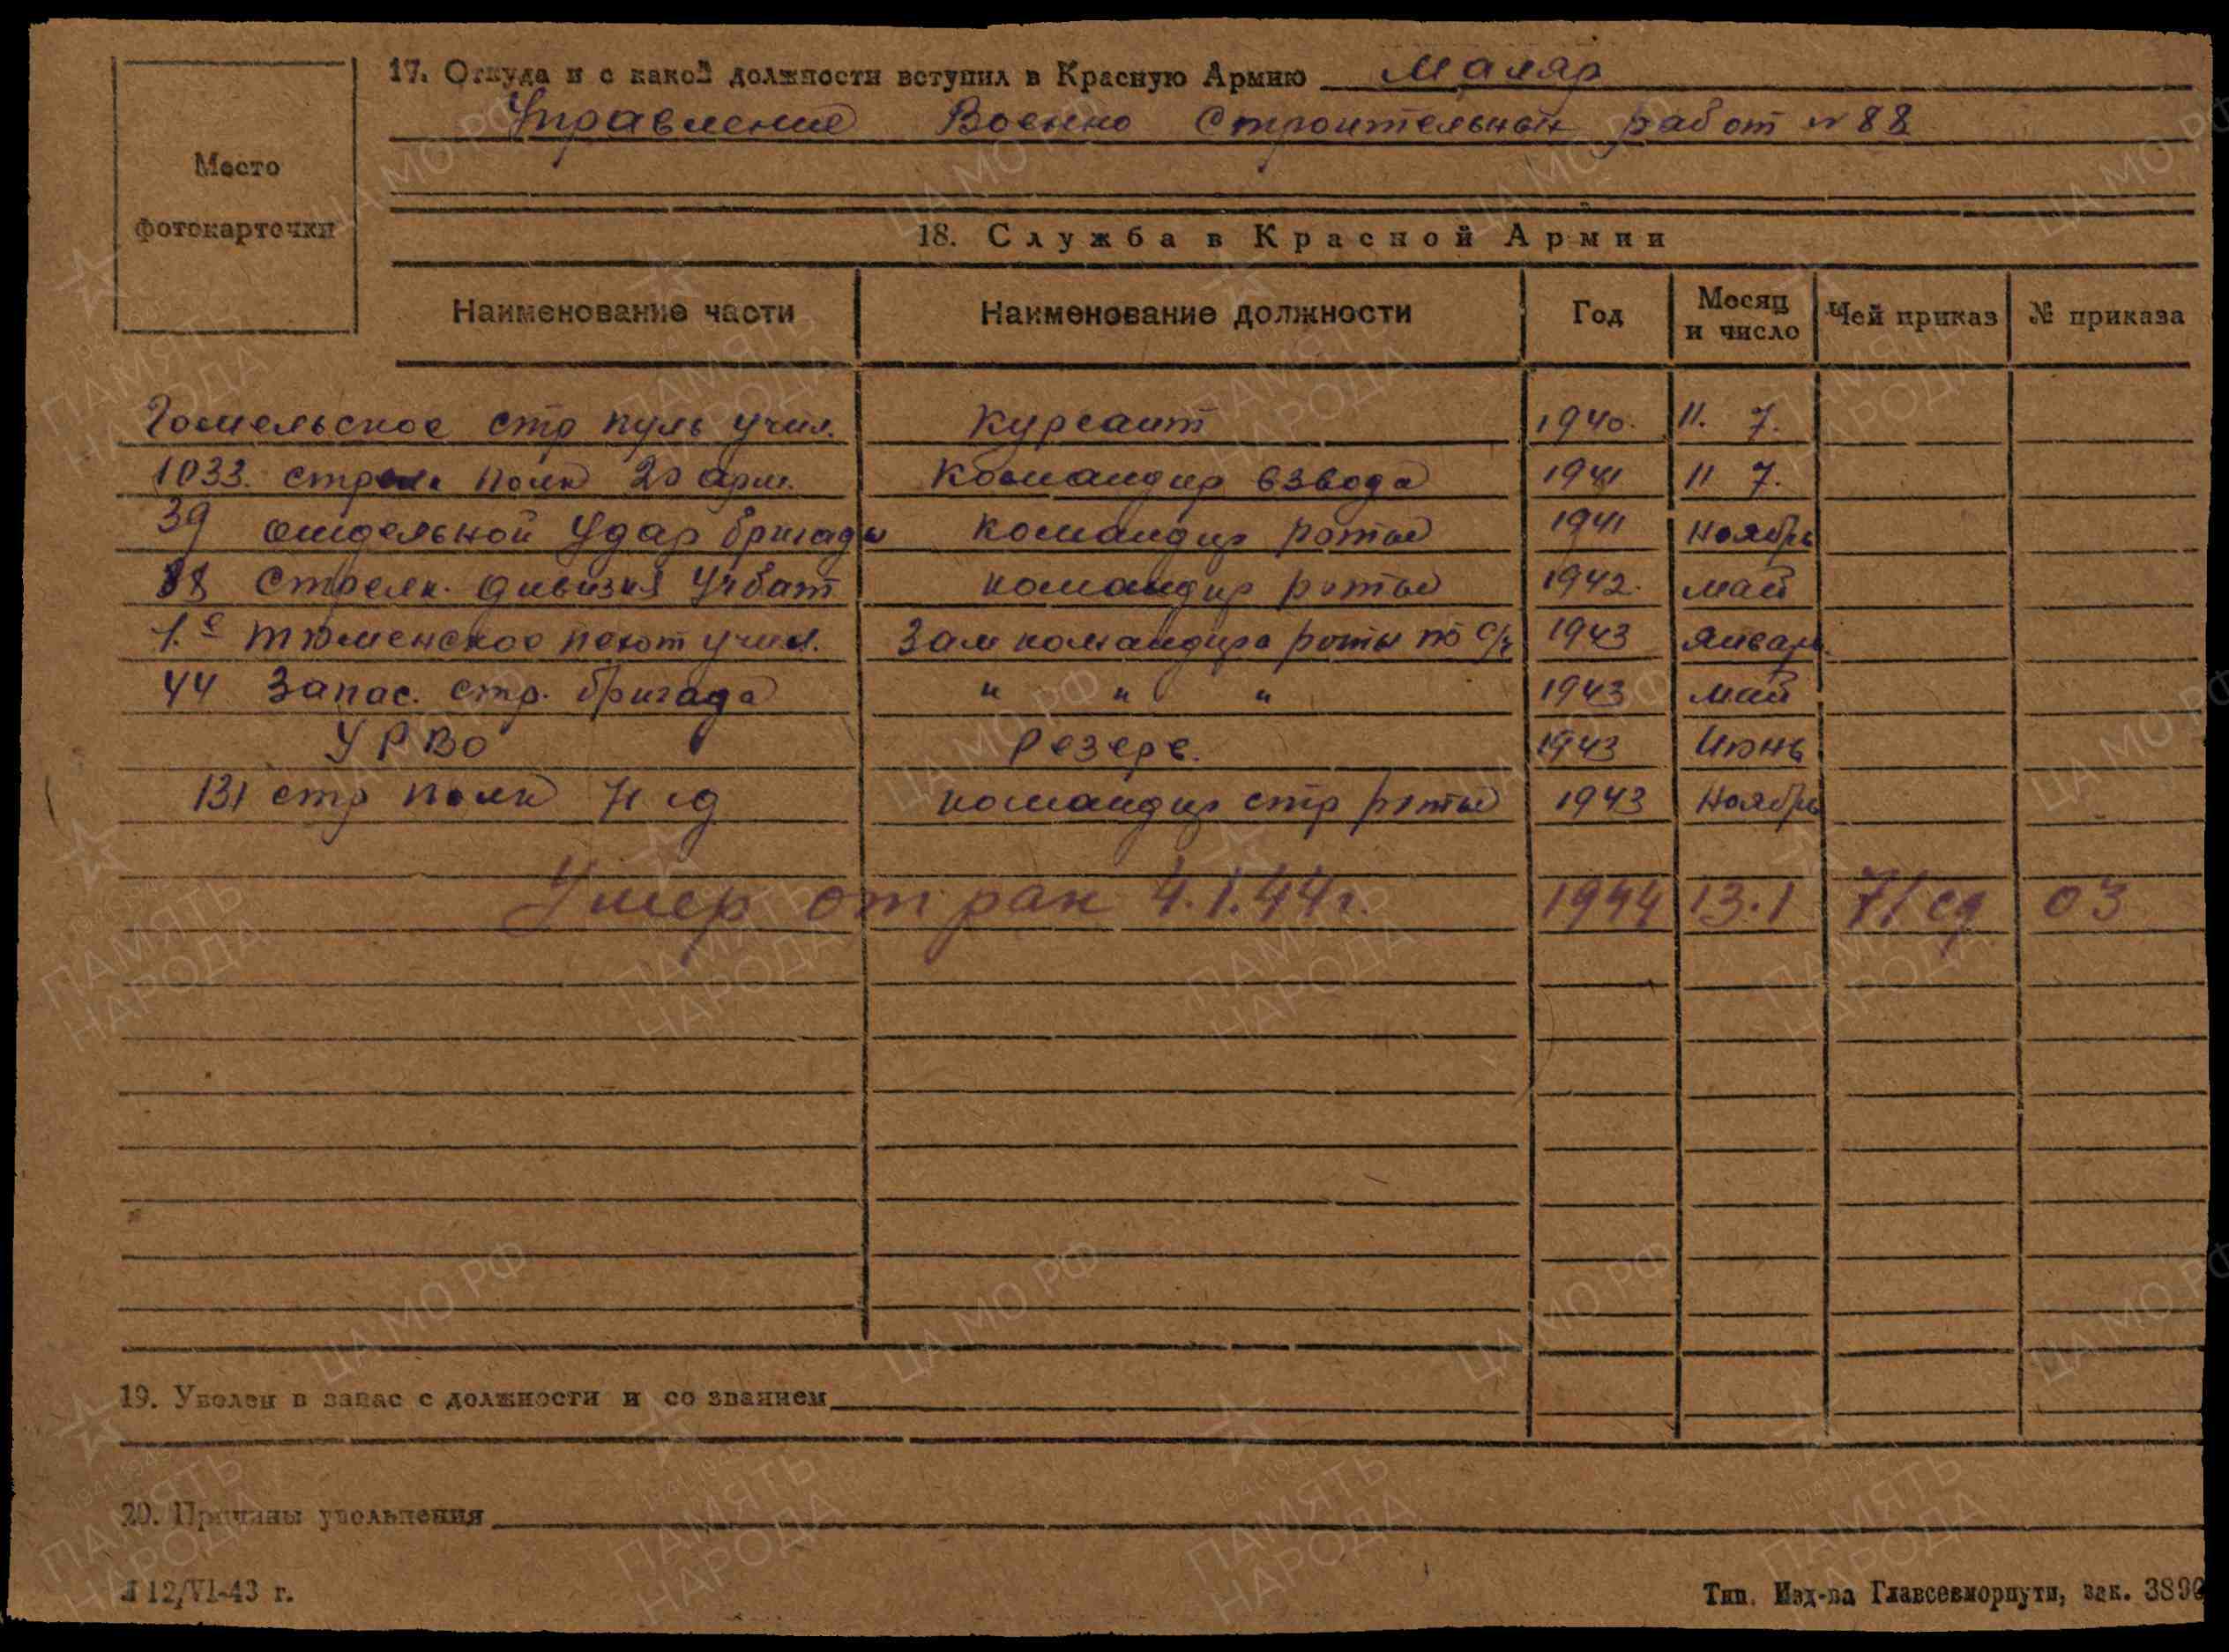 17. Откуда и с какой должности вступил в Красную Армию Маляр
Управление Военно Строительных работ № 88
Место
фотокарточки
18. Служба в Красной Армии
Наименование части Наименование должности Год Месяц и число Чей приказ № приказа
Гомельское стр пуль учил. Курсант 1940. 11. 7.
1033. стрелк полк 20 арм. Командир взвода 1941 11 7.
39 отдельной Удар бригады командир роты 1941 Ноябрь
88 Стрелк. дивизия Учбат командир роты 1942. май
1.е тюменское пехот учил. Зам командира роты по с/ч 1943 Январь.
44 Запас. стр. бригада " " " 1943 май
УРВО Резерв. 1943 Июнь
131 стр полк 71 сд командир стр роты 1943 Ноябрь
Умер от ран 4.1.44г. 1944 13.1 71 сд 03
19. Уволен в запас с должности и со званием
20. Причины увольнения
Л 12/VI-43 г.
Тип. Изд-ва Главсевморпути, зак. 3890
ЦА МО РФ
1941-1945
ПАМЯТЬ
НАРОДА